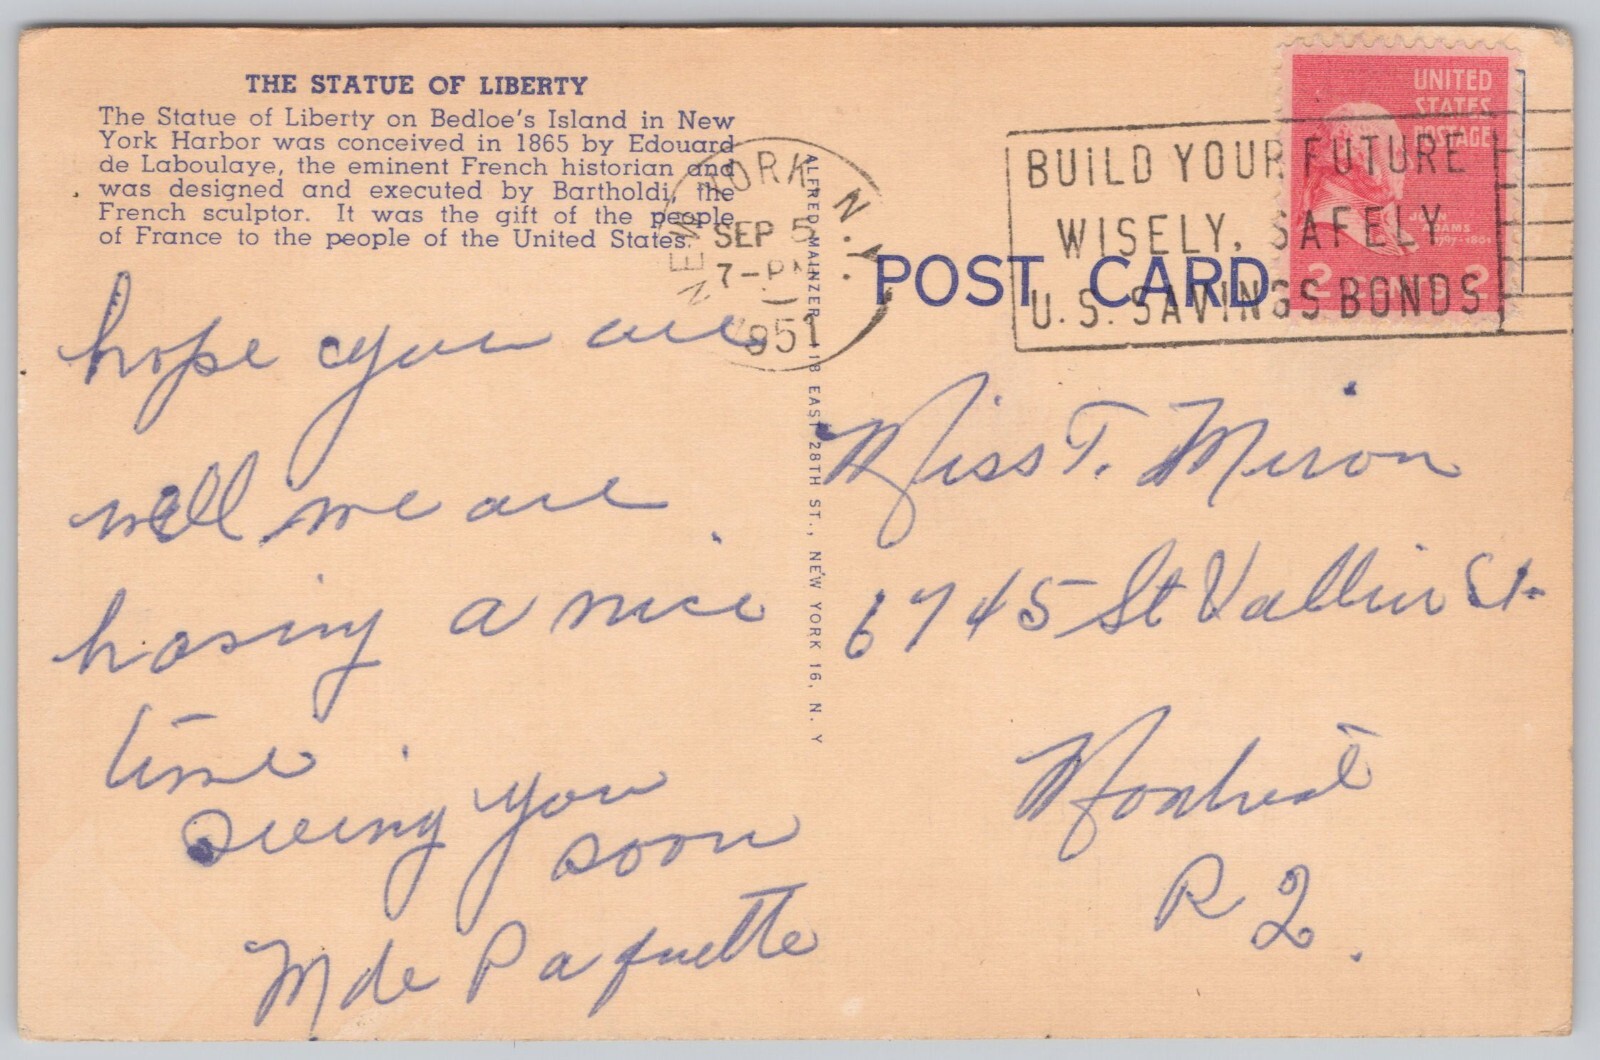 THE STATUE OF LIBERTY
The Statue of Liberty on Bedloe's Island in New
York Harbor was conceived in 1865 by Edouard
de Laboulaye, the eminent French historian and
was designed and executed by Bartholdi, the
French sculptor. It was the gift of the people
of France to the people of the United States.
hope you are
well we are
having a nice
time
seeing you
soon
Mde Paquette
ALFRED MAINZER, 118 EAST 28TH ST., NEW YORK 16, N. Y
NEW YORK, N.Y.
SEP 5
7-PM
1951
POST CARD
BUILD YOUR FUTURE
WISELY, SAFELY
U.S. SAVINGS BONDS
UNITED
STATES
POSTAGE
JOHN
ADAMS
1797-1801
2 CENTS 2
Miss T. Miron
6745 St Vallier St.
Montreal
P 2.